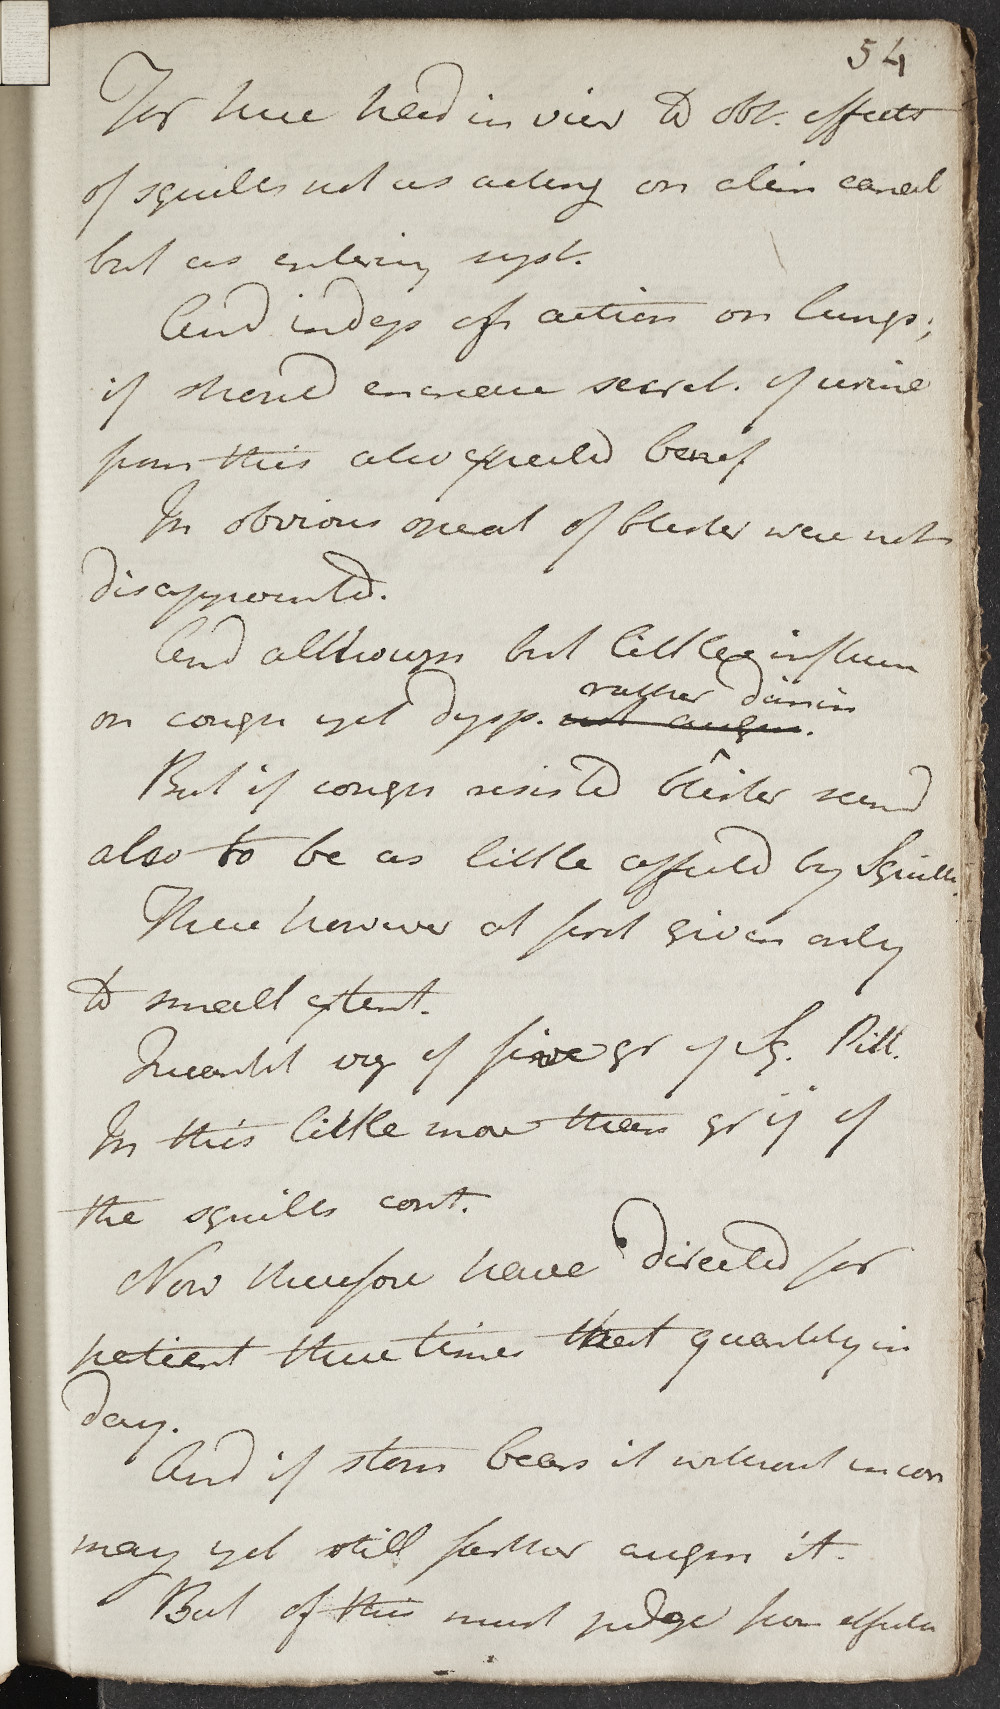 54
For here had in view to obt. effects
of squills not as acting on alim canal
but as entering syst.
And indep of action on lungs;
if should encrease secret. of urine
from this also expected benef
In obvious operat of blister were not
disappointed.
And although but little influen
rather dimin
on cough yet dysp. not augm.
But if cough resisted blister seemd
also to be as little affected by Squills
These however at first given only
to small extent.
Quantit viz of five gr of Sq. Pill.
In this little more than gr ij of
the squills cont.
Now therefore have directed for
patient three times that quantity in
day.
And if stom bears it without incon
may yet still farther augm it.
But of this must judge from effects